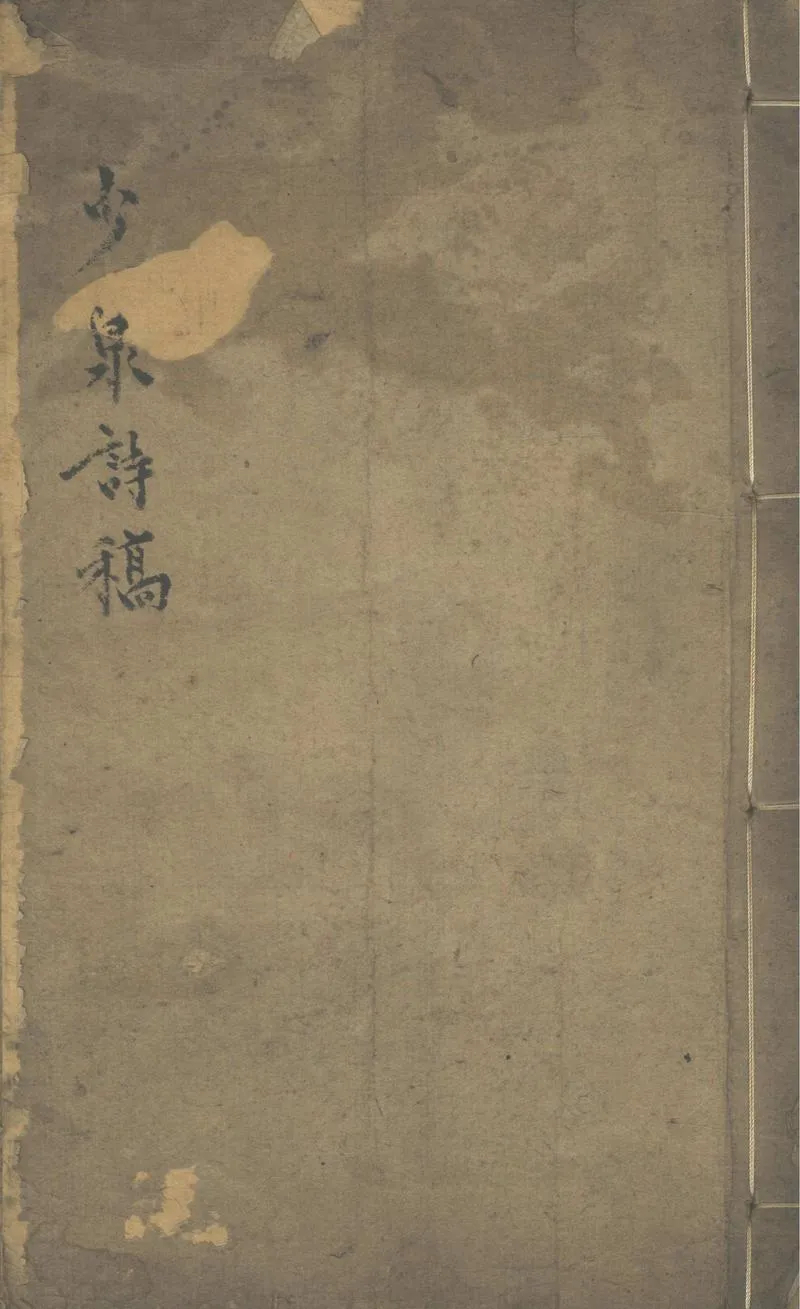 少泉詩稿